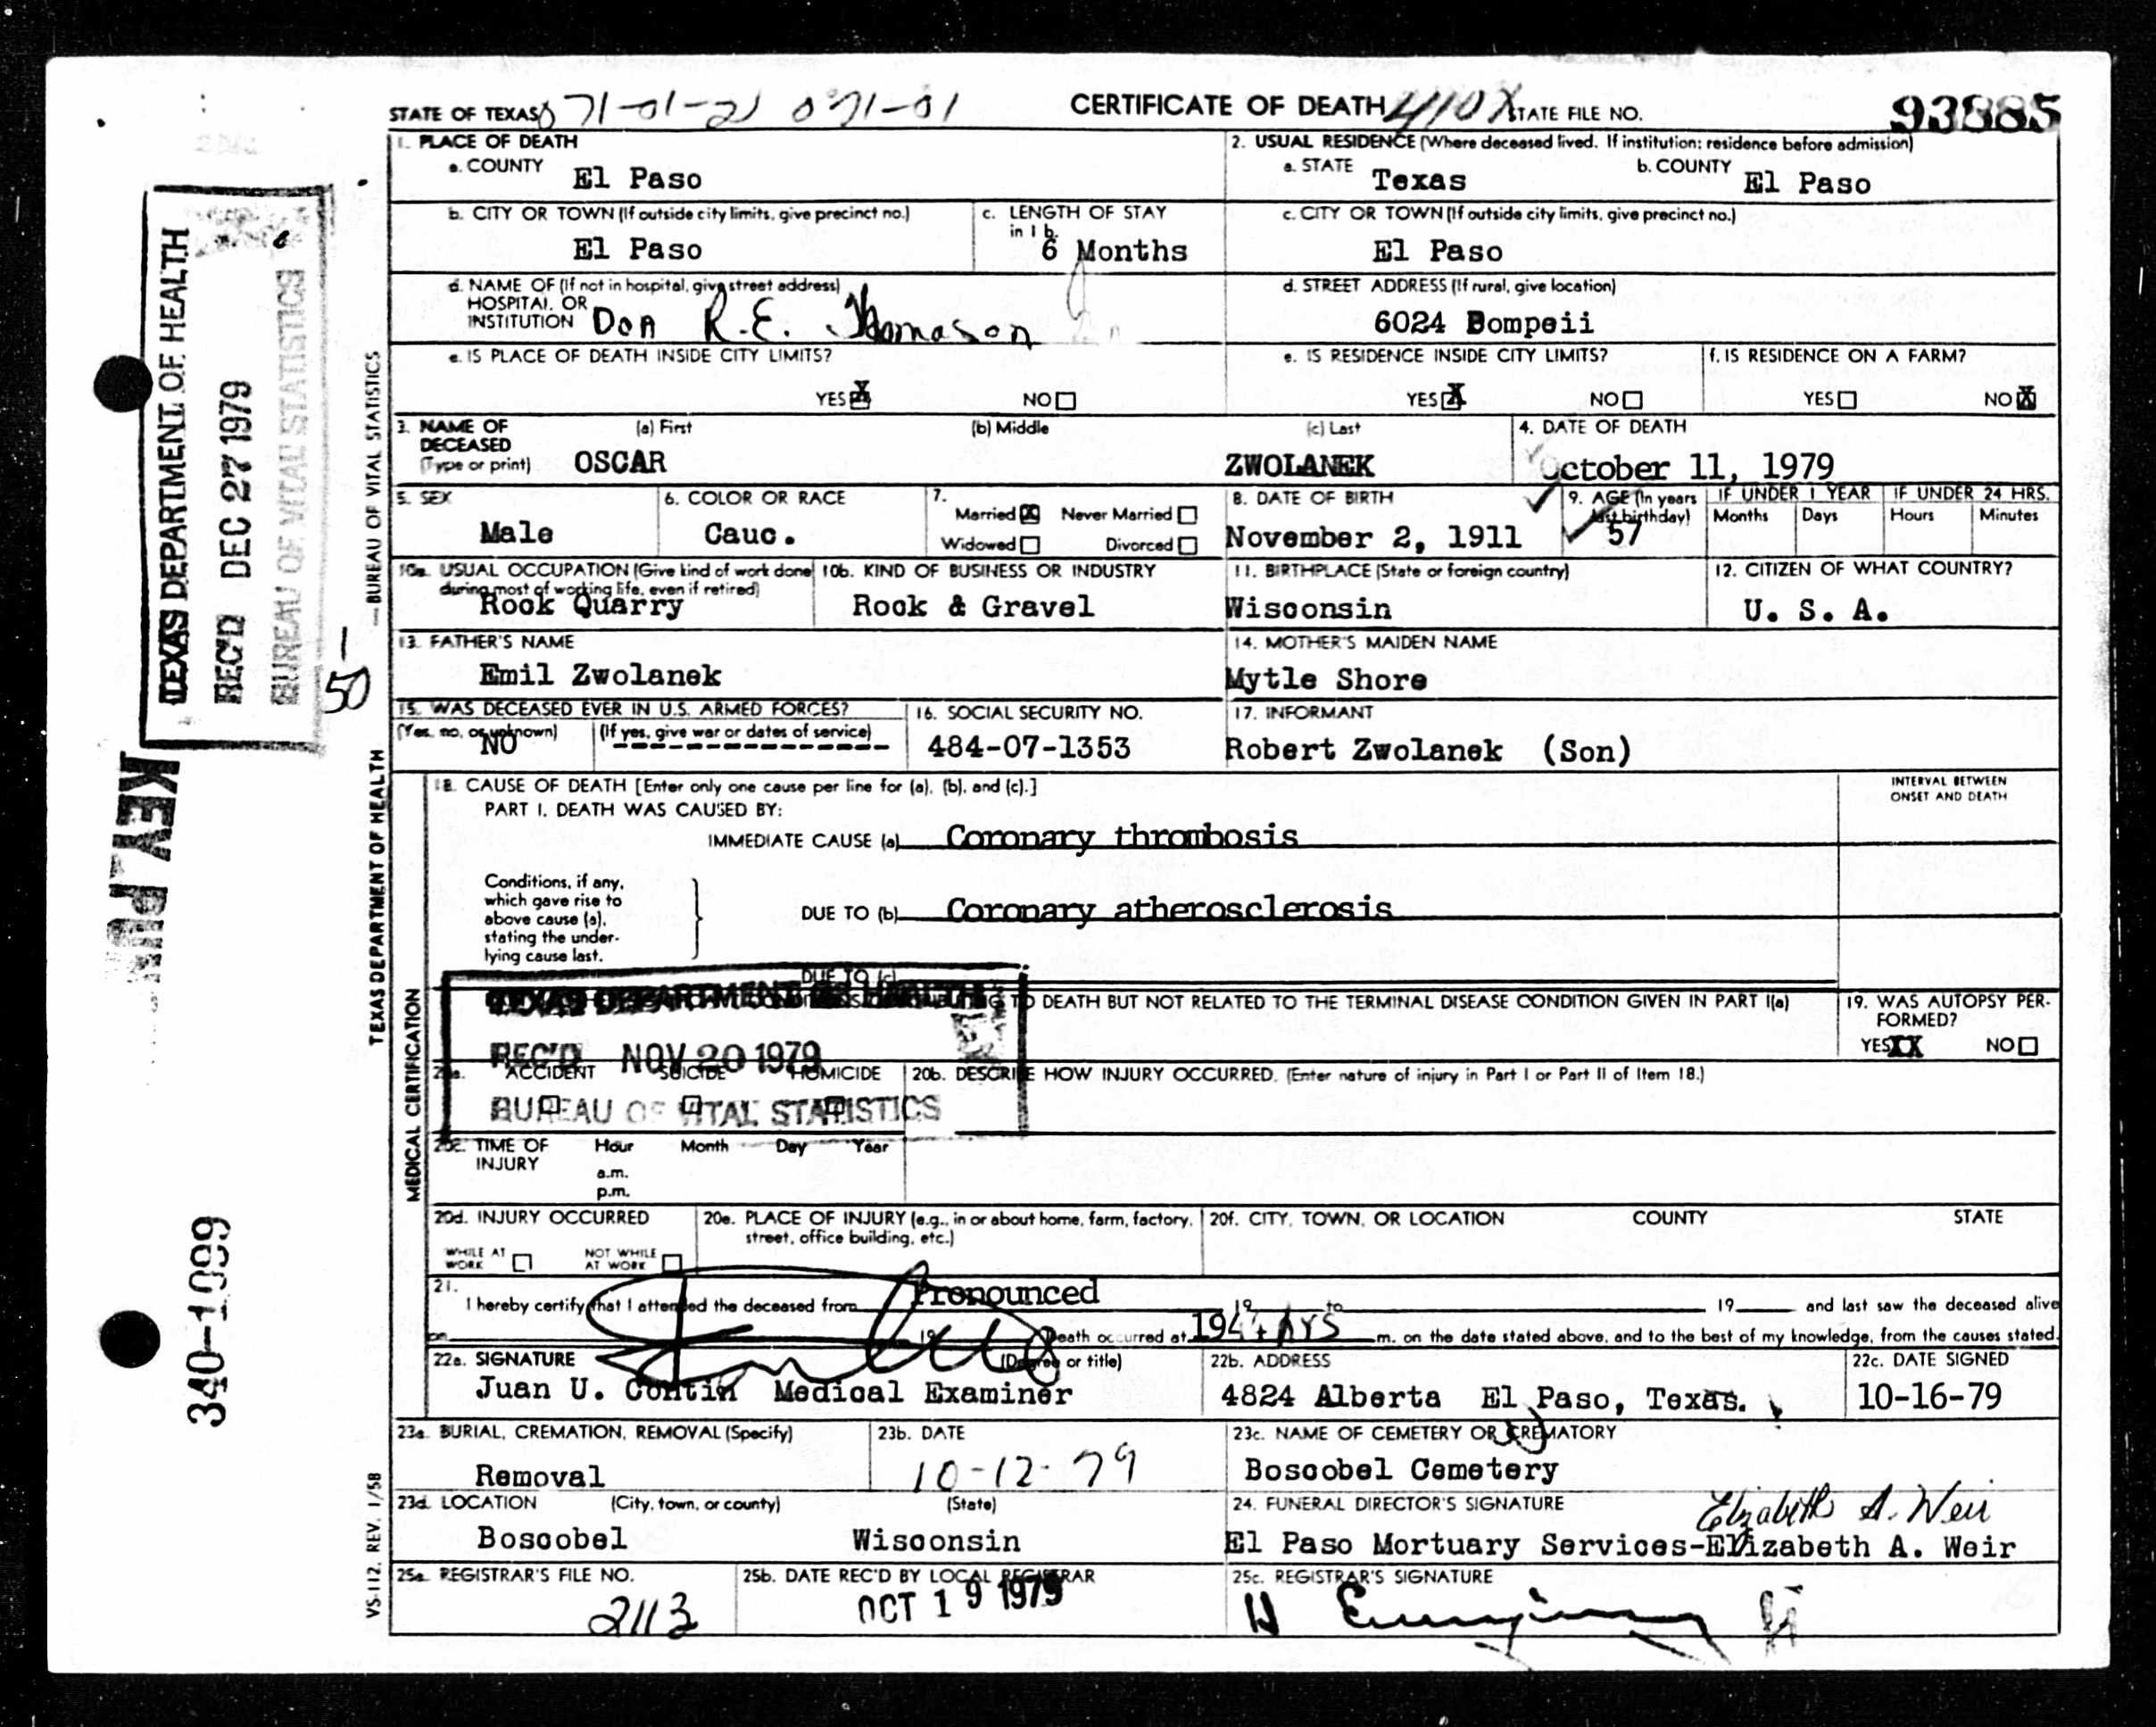 STATE OF TEXAS 071-01-21 071-01 CERTIFICATE OF DEATH 410X STATE FILE NO. 93885
1. PLACE OF DEATH
a. COUNTY El Paso
2. USUAL RESIDENCE (Where deceased lived. If institution: residence before admission)
a. STATE Texas b. COUNTY El Paso
b. CITY OR TOWN (If outside city limits, give precinct no.) El Paso
c. LENGTH OF STAY in 1 b. 6 Months
c. CITY OR TOWN (If outside city limits, give precinct no.) El Paso
d. NAME OF (If not in hospital, give street address)
HOSPITAL OR
INSTITUTION DOA R.E. Thomason
d. STREET ADDRESS (If rural, give location)
6024 Pompeii
e. IS PLACE OF DEATH INSIDE CITY LIMITS?
YES X NO
e. IS RESIDENCE INSIDE CITY LIMITS?
YES X NO
f. IS RESIDENCE ON A FARM?
YES NO X
3. NAME OF DECEASED (Type or print)
(a) First (b) Middle (c) Last
OSCAR ZWOLANEK
4. DATE OF DEATH
October 11, 1979
5. SEX
Male
6. COLOR OR RACE
Cauc.
7.
Married X Never Married
Widowed Divorced
8. DATE OF BIRTH
November 2, 1911
9. AGE (In years last birthday)
57
IF UNDER 1 YEAR
Months Days
IF UNDER 24 HRS.
Hours Minutes
10a. USUAL OCCUPATION (Give kind of work done
during most of working life, even if retired)
Rock Quarry
10b. KIND OF BUSINESS OR INDUSTRY
Rock & Gravel
11. BIRTHPLACE (State or foreign country)
Wisconsin
12. CITIZEN OF WHAT COUNTRY?
U. S. A.
13. FATHER'S NAME
Emil Zwolanek
14. MOTHER'S MAIDEN NAME
Mytle Shore
15. WAS DECEASED EVER IN U.S. ARMED FORCES?
(Yes, no, or unknown) (If yes, give war or dates of service)
NO
16. SOCIAL SECURITY NO.
484-07-1353
17. INFORMANT
Robert Zwolanek (Son)
18. CAUSE OF DEATH [Enter only one cause per line for (a), (b), and (c).]
PART I. DEATH WAS CAUSED BY:
IMMEDIATE CAUSE (a) Coronary thrombosis
INTERVAL BETWEEN
ONSET AND DEATH
Conditions, if any,
which gave rise to
above cause (a),
stating the under-
lying cause last.
DUE TO (b) Coronary atherosclerosis
DUE TO (c)
TO DEATH BUT NOT RELATED TO THE TERMINAL DISEASE CONDITION GIVEN IN PART I(a)
19. WAS AUTOPSY PER-
FORMED?
YES XX NO
TEXAS DEPARTMENT OF HEALTH
REC'D NOV 20 1979
BUREAU OF VITAL STATISTICS
20a. ACCIDENT SUICIDE HOMICIDE
20b. DESCRIBE HOW INJURY OCCURRED. (Enter nature of injury in Part I or Part II of Item 18.)
20c. TIME OF INJURY
Hour Month Day Year
a.m.
p.m.
20d. INJURY OCCURRED
WHILE AT WORK NOT WHILE AT WORK
20e. PLACE OF INJURY (e.g., in or about home, farm, factory,
street, office building, etc.)
20f. CITY, TOWN, OR LOCATION COUNTY STATE
21.
I hereby certify that I attended the deceased from Pronounced 19 to 19 and last saw the deceased alive
on 19 Death occurred at 194 hrs m. on the date stated above, and to the best of my knowledge, from the causes stated.
22a. SIGNATURE (Degree or title)
Juan U. Contin Medical Examiner
22b. ADDRESS
4824 Alberta El Paso, Texas.
22c. DATE SIGNED
10-16-79
23a. BURIAL, CREMATION, REMOVAL (Specify)
Removal
23b. DATE
10-12-79
23c. NAME OF CEMETERY OR CREMATORY
Boscobel Cemetery
23d. LOCATION (City, town, or county) (State)
Boscobel Wisconsin
24. FUNERAL DIRECTOR'S SIGNATURE
Elizabeth A. Weir
El Paso Mortuary Services-Elizabeth A. Weir
25a. REGISTRAR'S FILE NO.
2113
25b. DATE REC'D BY LOCAL REGISTRAR
OCT 19 1979
25c. REGISTRAR'S SIGNATURE
TEXAS DEPARTMENT OF HEALTH
REC'D DEC 27 1979
BUREAU OF VITAL STATISTICS
50
KEY PUN
340-1099
TEXAS DEPARTMENT OF HEALTH — BUREAU OF VITAL STATISTICS
MEDICAL CERTIFICATION
VS-112, REV. 1/58